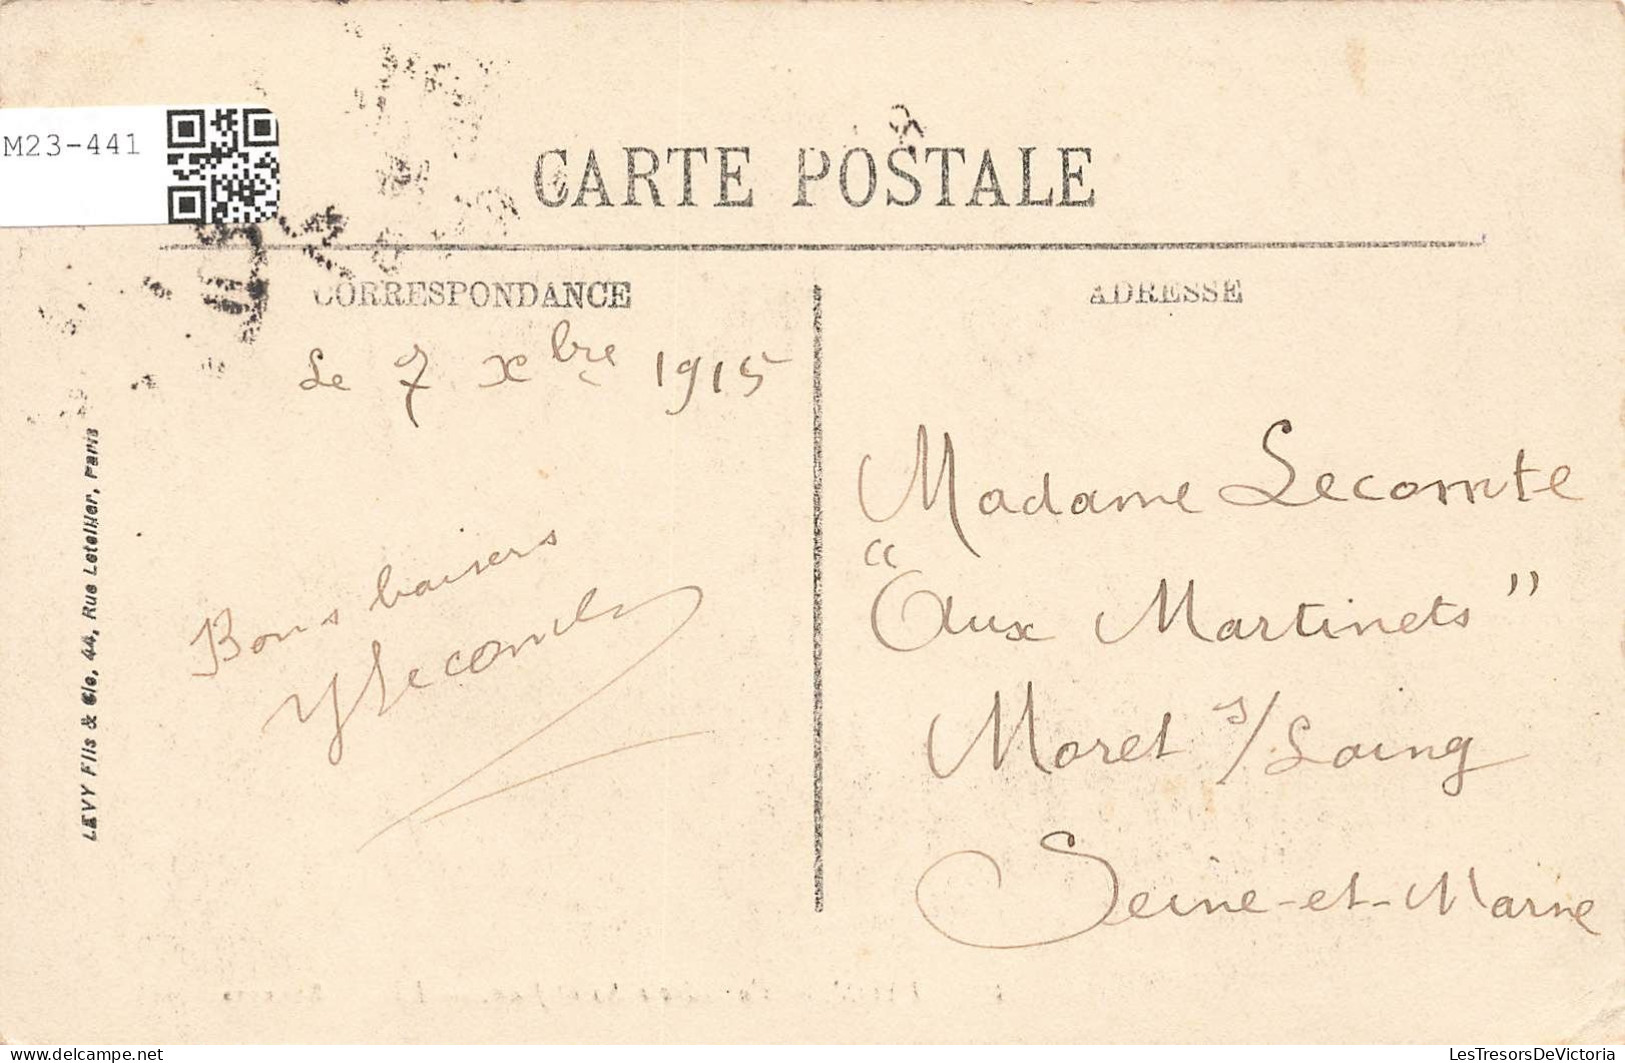 M23-441
CARTE POSTALE
CORRESPONDANCE
ADRESSE
Le 7 Xbre 1915
Bons baisers
YLecomte
Madame Lecomte
“Aux Martinets”
Moret s/Loing
Seine-et-Marne
LEVY Fils & Cie, 44, Rue Letellier, Paris
delcampe.net
LesTresorsDeVictoria